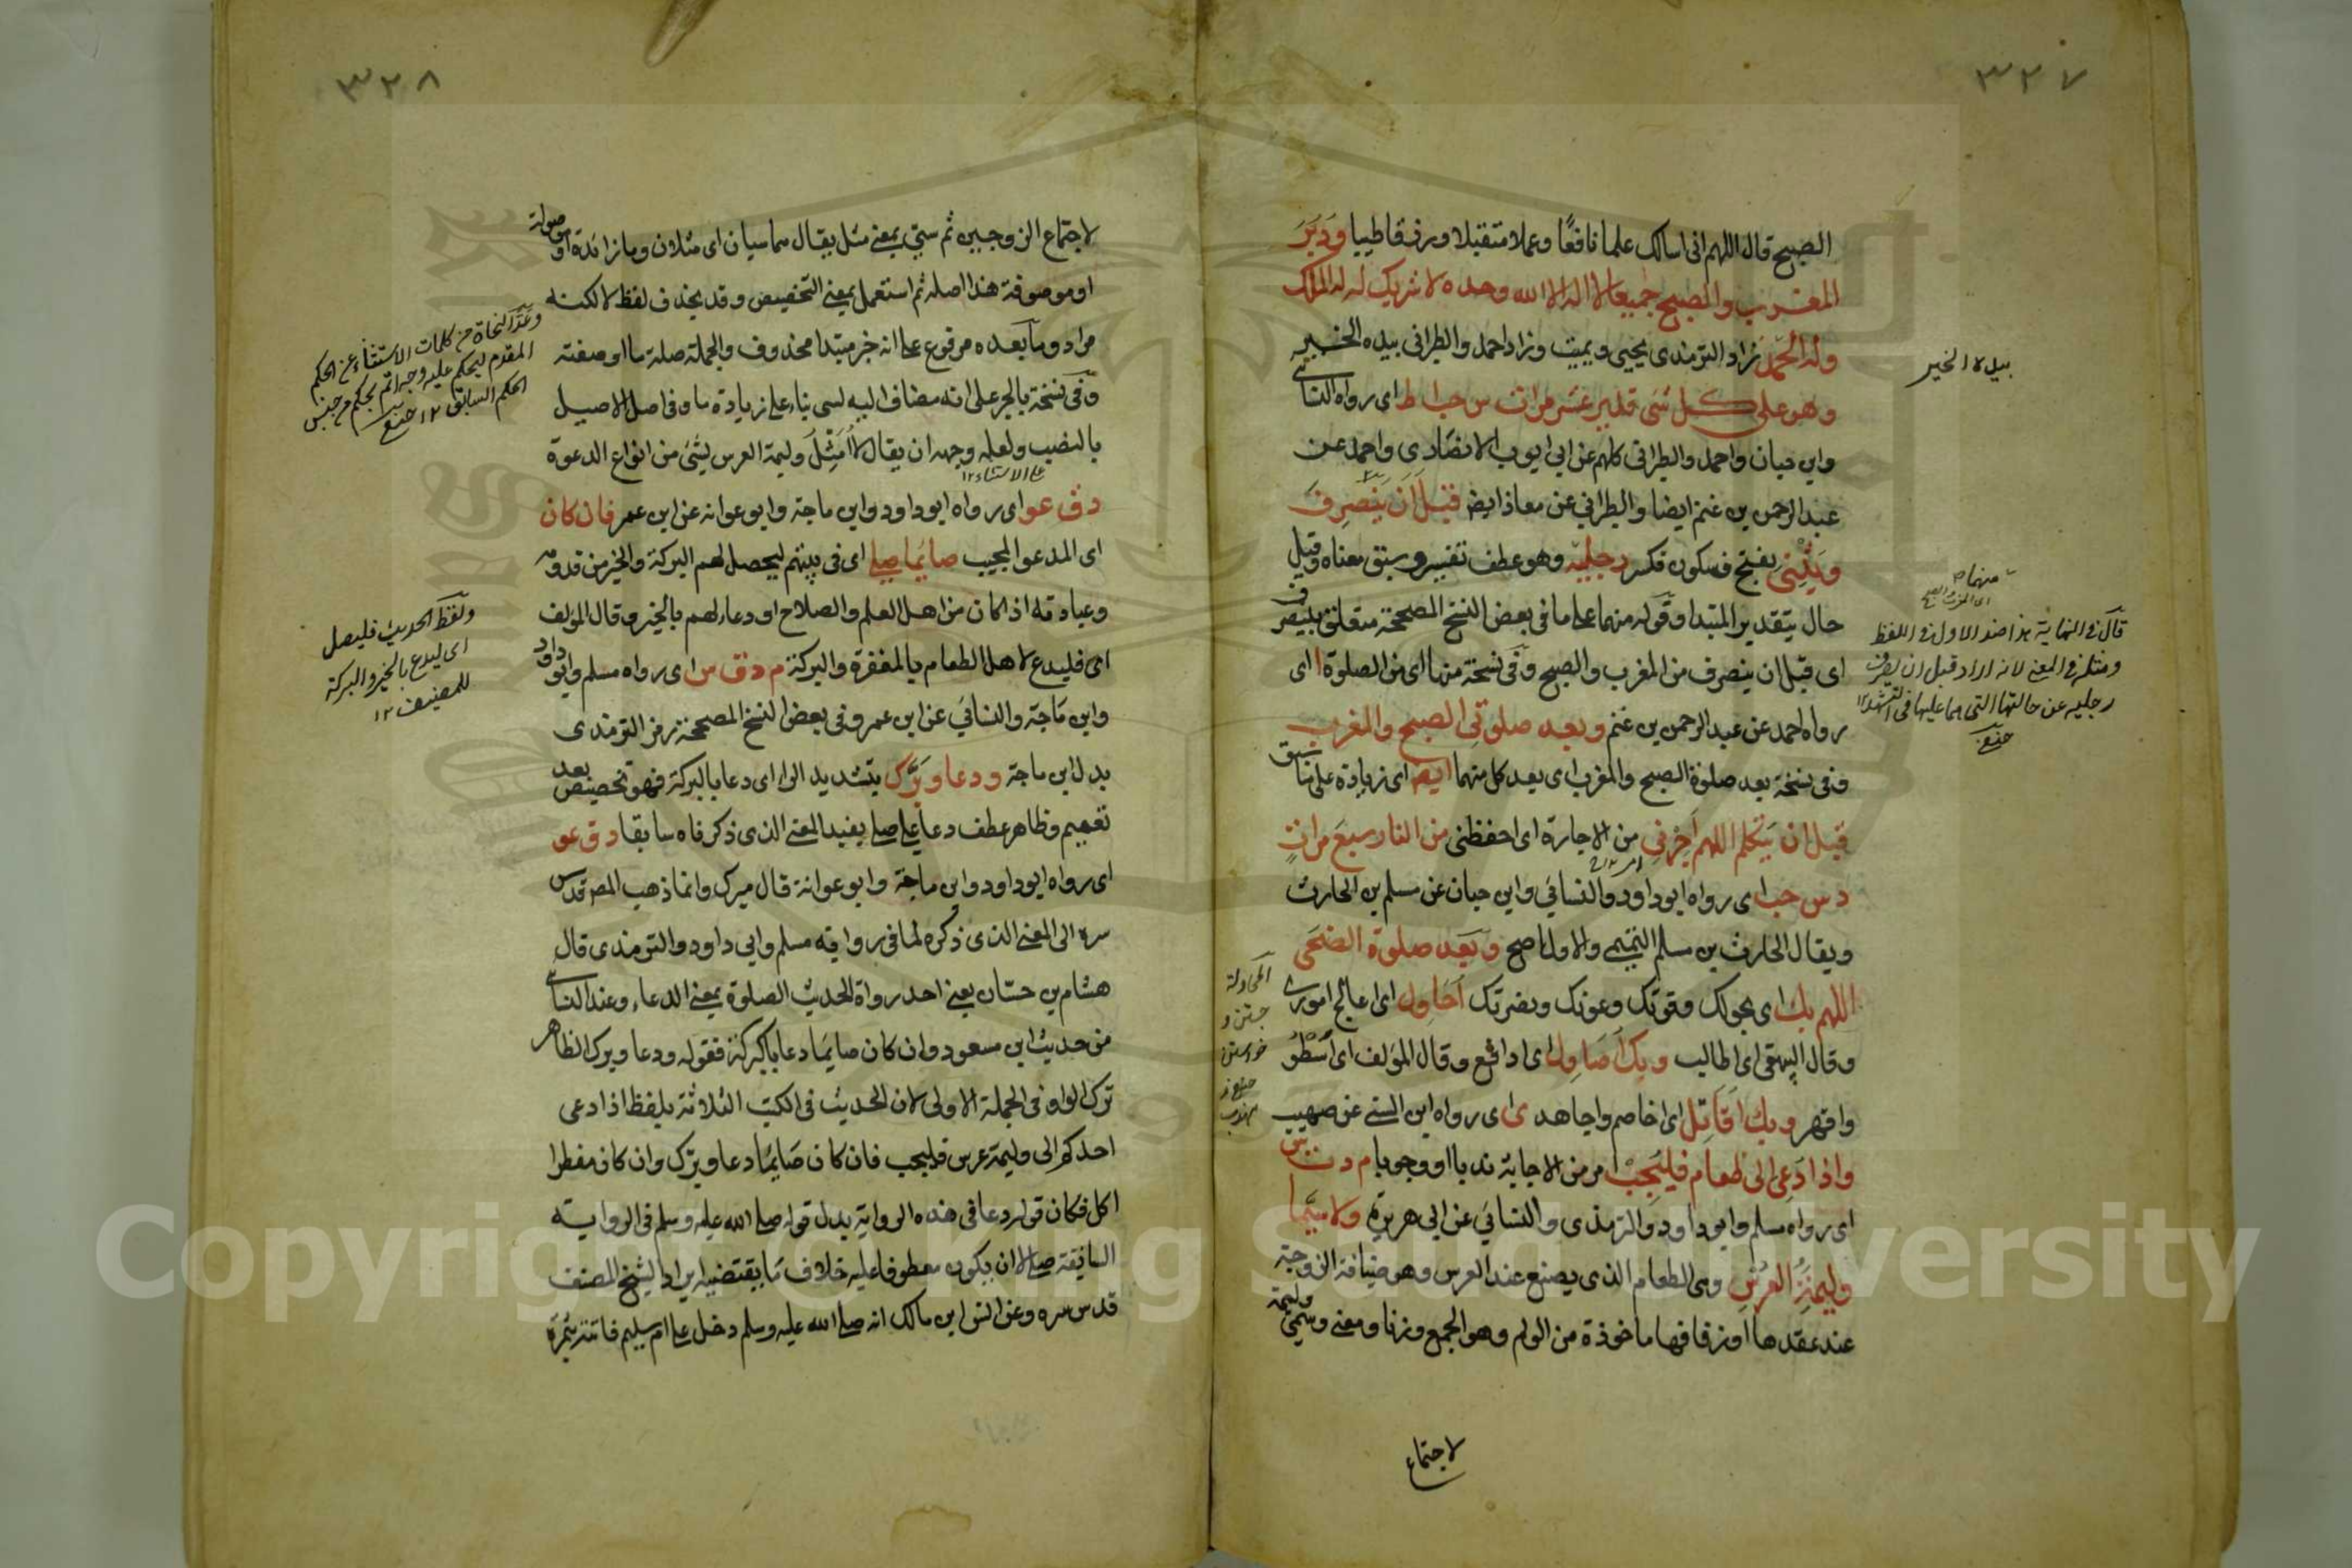 ٣٢٧
الصبح قال اللهم اني اسالك علما نافعًا وعملا متقبلا ورزقا طيبا ودبر
المغرب والصبح جميعا لا اله الا الله وحده لا شريك له له الملك
وله الحمد زاد الترمذي يحيي ويميت وزاد احمد والطبراني بيده الخير
وهو على كل شئ قدير عشر مرات س حب ا ط اي رواه النسائي
وابن حبان واحمد والطبراني كلهم عن ابي ايوب الانصاري واحمد عن
عبد الرحمن بن غنم ايضا والطبراني عن معاذ ايضا قبل ان ينصرف
ويثني بفتح فسكون فكسر رجليه وهو عطف تفسير وسبق معناه وقيل
حال بتقدير المبتدا وقوله منهما على ما في بعض النسخ المصححة متعلق بينصرف
اي قبل ان ينصرف من المغرب والصبح وفي نسخة منها اي من الصلوة ا اي
رواه احمد عن عبد الرحمن بن غنم وبعد صلوتي الصبح والمغرب
وفي نسخة بعد صلوة الصبح والمغرب اي بعد كل منهما ايضا اي زيادة على ما سبق
قبل ان يتكلم اللهم اجرني من الاجارة اي احفظني من النار سبع مرات
د س حب اي رواه ابو داود والنسائي وابن حبان عن مسلم بن الحارث
ويقال الحارث بن مسلم التميمي والاول اصح وبعد صلوة الضحى
اللهم بك اي بحولك وقوتك وعونك ونصرتك احاول اي اعالج اموري
وقال البيهقي اي اطالب وبك اصاول اي ادافع وقال المؤلف اي اسطو
واقهر وبك اقاتل اي اخاصم واجاهد ي اي رواه ابن السني عن صهيب
واذا دعي الى طعام فليجب امر من الاجابة ندبا او وجوبا م د ت س
اي رواه مسلم وابو داود والترمذي والنسائي عن ابي هريرة ولا سيما
وليمة العرس وهي الطعام الذي يصنع عند العرس وهو ضيافة الزوجة
عند عقدها او زفافها ماخوذة من الولم وهو الجمع وزنا ومعنى وسمي وليمة
لاجتماع
بيده الخير
منهما
قال في النهاية هذا ضد الاول في اللفظ
ومثله في المعنى لانه اراد قبل ان يصرف
رجليه عن حالتها التي هما عليها في التشهد ١٢
المحاولة
جستن و
خواستن
٣٢٨
لاجتماع الزوجين ثم سيّ بمعنى مثل يقال هما سيان اي مثلان وما زائدة او موصولة
او موصوفة هذا اصله ثم استعمل بمعنى التخصيص وقد يحذف لفظ لا لكنه
مراد وما بعده مرفوع على انه خبر مبتدا محذوف والجملة صلة ما او صفته
وفي نسخة بالجر على انه مضاف اليه لسي بناء على زيادة ما وفي اصل الاصيل
بالنصب ولعله وجهه ان يقال لا امثل وليمة العرس بشئ من انواع الدعوة
على الاستثناء ١٢
د ق عو اي رواه ابو داود وابن ماجة وابو عوانه عن ابن عمر فان كان
اي المدعو المجيب صايما صلى اي في بيتهم ليحصل لهم البركة والخير من قدومه
وعبادته اذا كان من اهل العلم والصلاح او دعاء لهم بالخير وقال المؤلف
اي فليدع لاهل الطعام بالمغفرة والبركة م د ق س اي رواه مسلم وابو داود
وابن ماجة والنسائي عن ابن عمر وفي بعض النسخ المصححة رمز الترمذي
بدل ابن ماجة ودعا وبرّك بتشديد الراء اي دعا بالبركة فهو تخصيص بعد
تعميم وظاهر عطف دعا على صلى يفيد المعنى الذي ذكرناه سابقا د ق عو
اي رواه ابو داود وابن ماجة وابو عوانة قال ميرك وانما ذهب المص قدس
سره الى المعنى الذي ذكره لما في رواية مسلم وابي داود والترمذي قال
هشام بن حسّان يعني احد رواة الحديث الصلوة بمعنى الدعاء وعند النسائي
من حديث ابن مسعود وان كان صايما دعا بالبركة فقوله ودعا وبرك الظاهر
ترك الواو في الجملة الاولى لان الحديث في الكتب الثلاثة بلفظ اذا دعي
احدكم الى وليمة عرس فليجب فان كان صايما دعا وبرّك وان كان مفطرا
اكل فكان قوله دعا في هذه الرواية بدل قوله صلى الله عليه وسلم في الرواية
السابقة صلى لا ان يكون معطوفا عليه خلاف ما يقتضيه ايراد الشيخ المصنف
قدس سره وعن انس ابن مالك انه صلى الله عليه وسلم دخل على ام سليم فاتته بتمرة
وعد النحاة من كلمات الاستثناء عن الحكم
المقدم ليحكم عليه وجه اتم بحكم من جنس
الحكم السابق ١٢
ولفظ الحديث فليصل
اي ليدع بالخير والبركة
للمصنف ١٢
Copyright © King Saud University